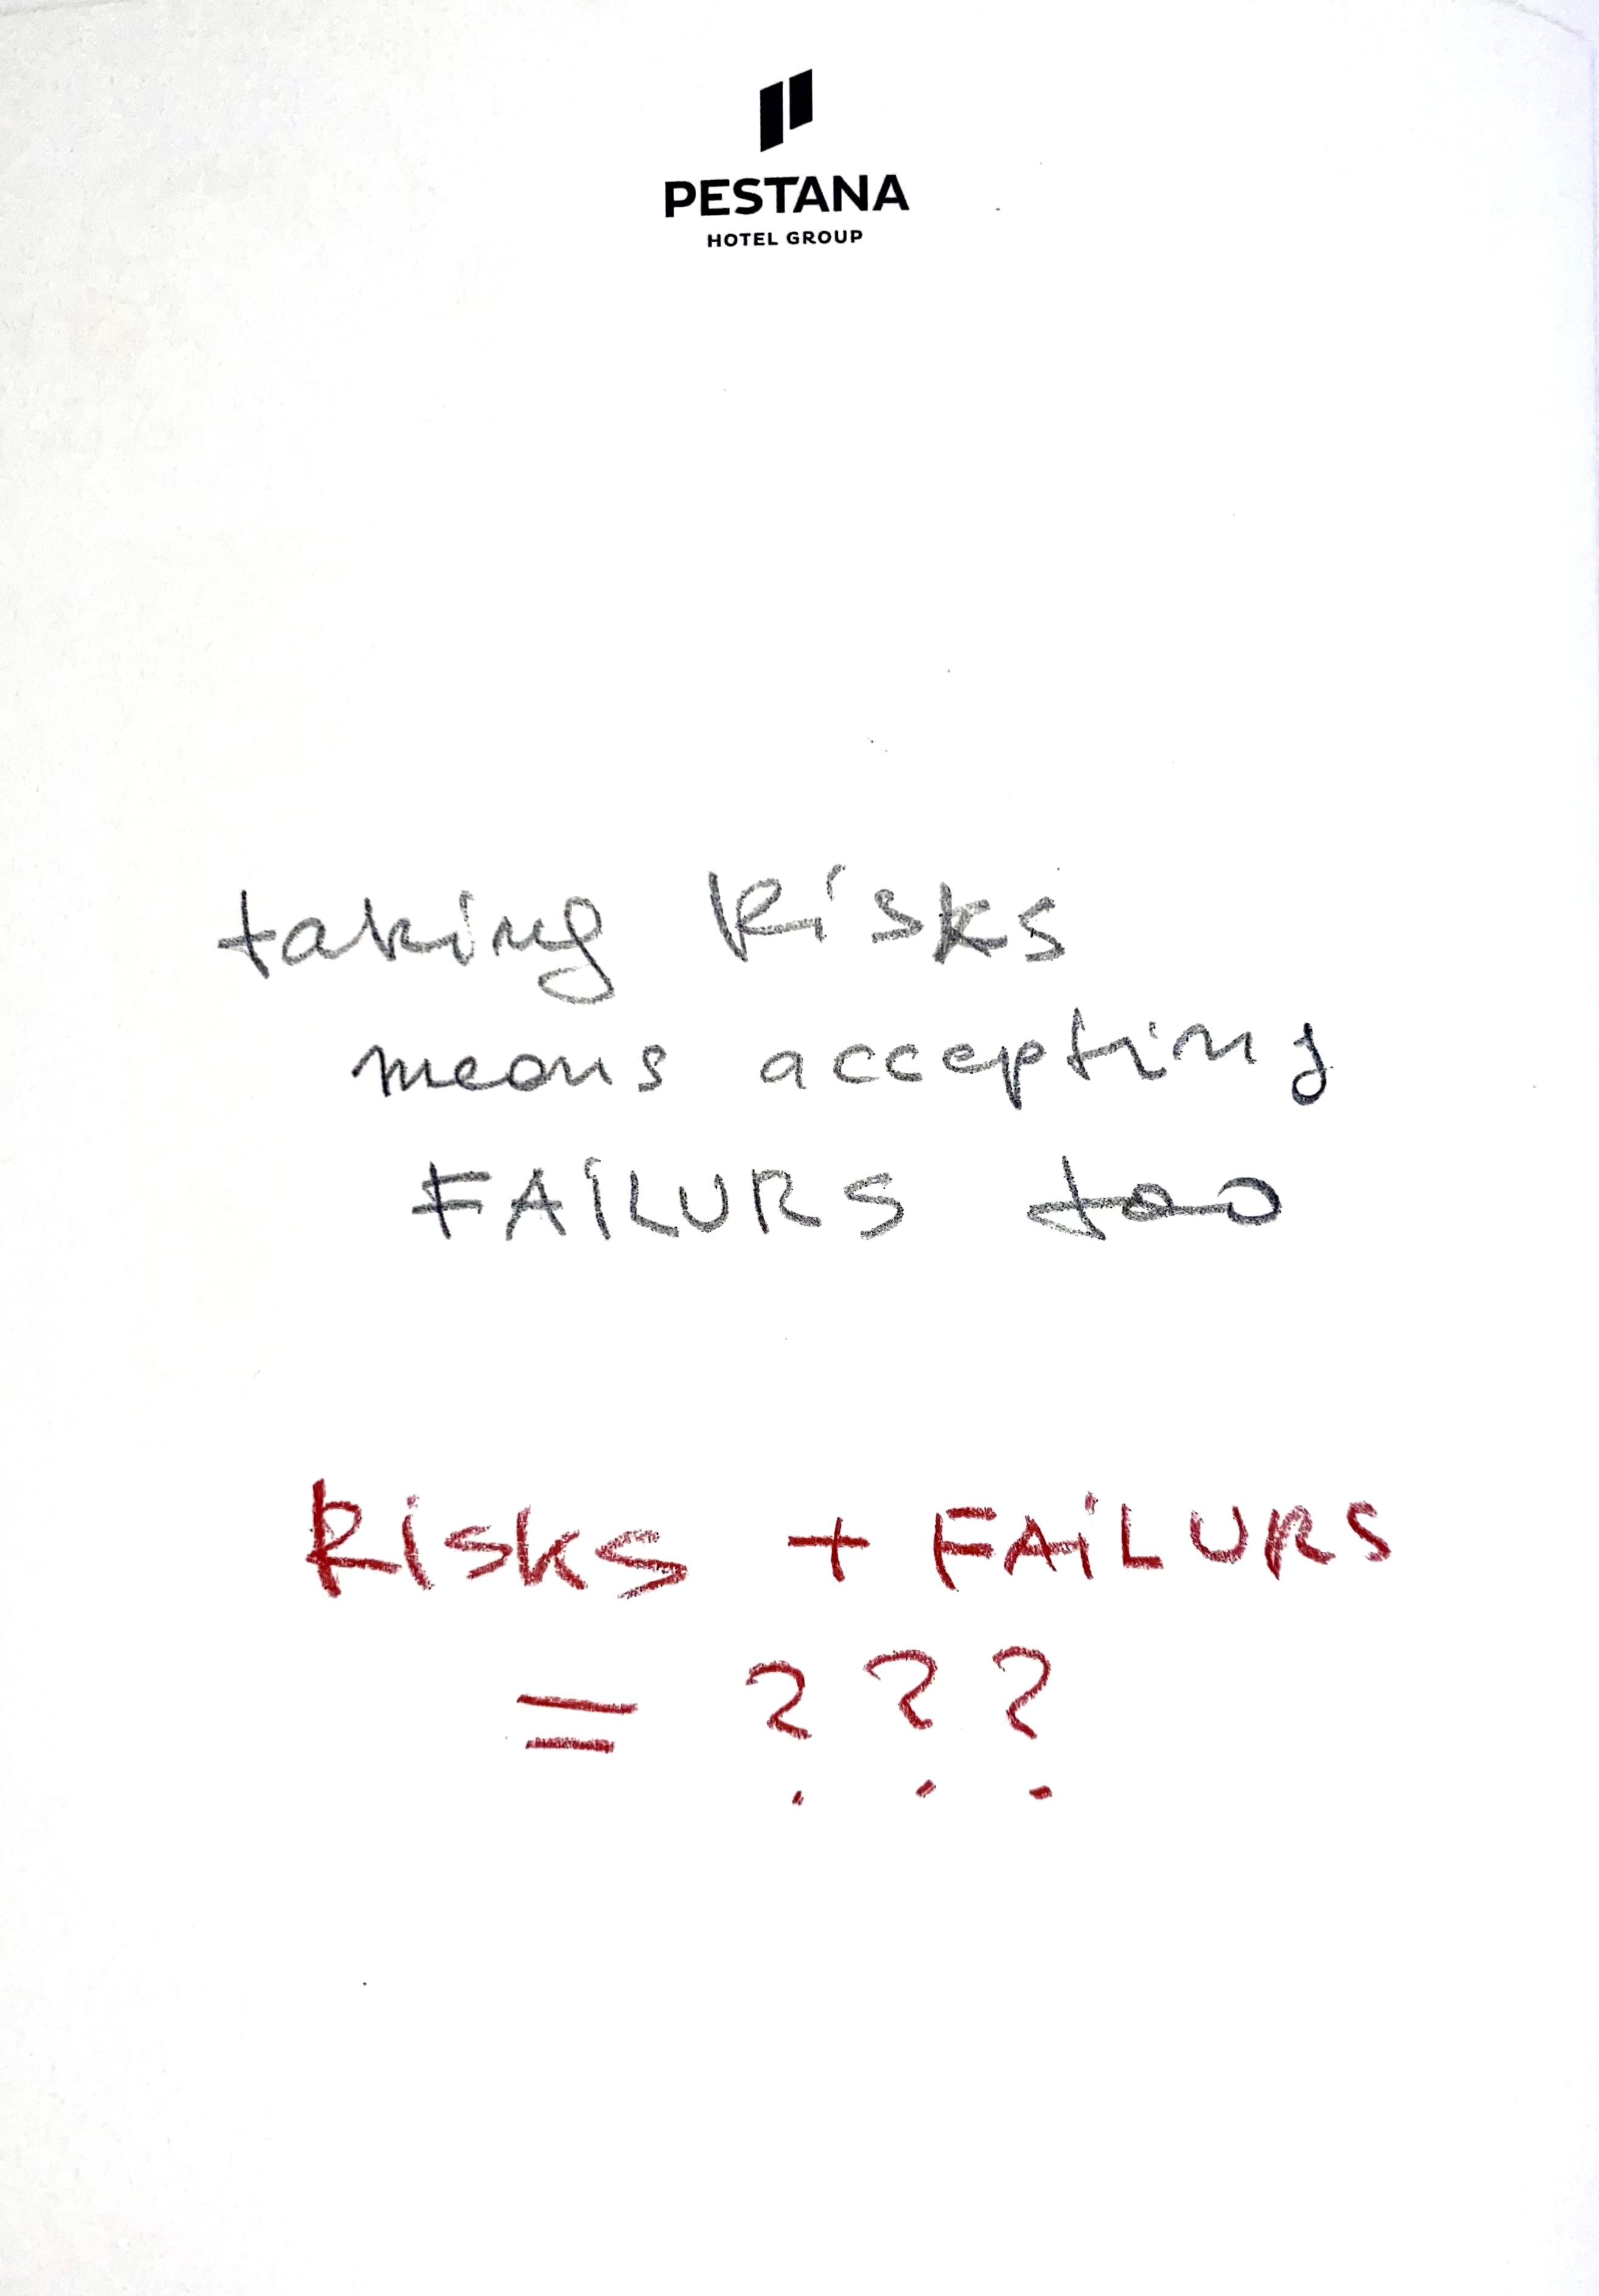 PESTANA
HOTEL GROUP
taking Risks
means accepting
FAiLURS too
Risks + FAiLURS
= ???